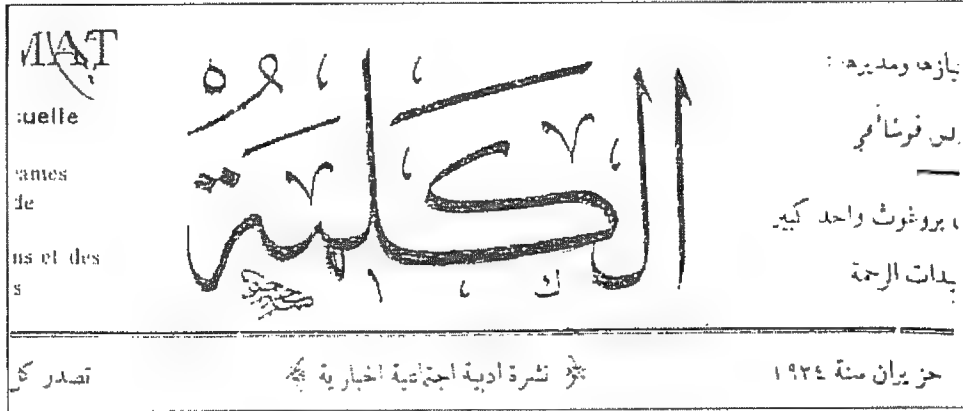 ومديرها :
بروغوث واحد كبير
الرحمة
الكلمة
MAT
suelle
rames
de
ns et des
s
حزيران سنة ١٩٢٤
نشرة ادبية اجتماعية اخبارية
تصدر كل